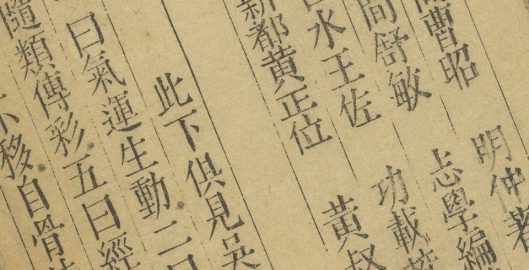 曹昭　明仲著
間舒敏　志學編
水王佐　功載
新都黃正位　黃叔
此下俱見吳
曰氣運生動二曰
隨類傳彩五曰經
不移自骨